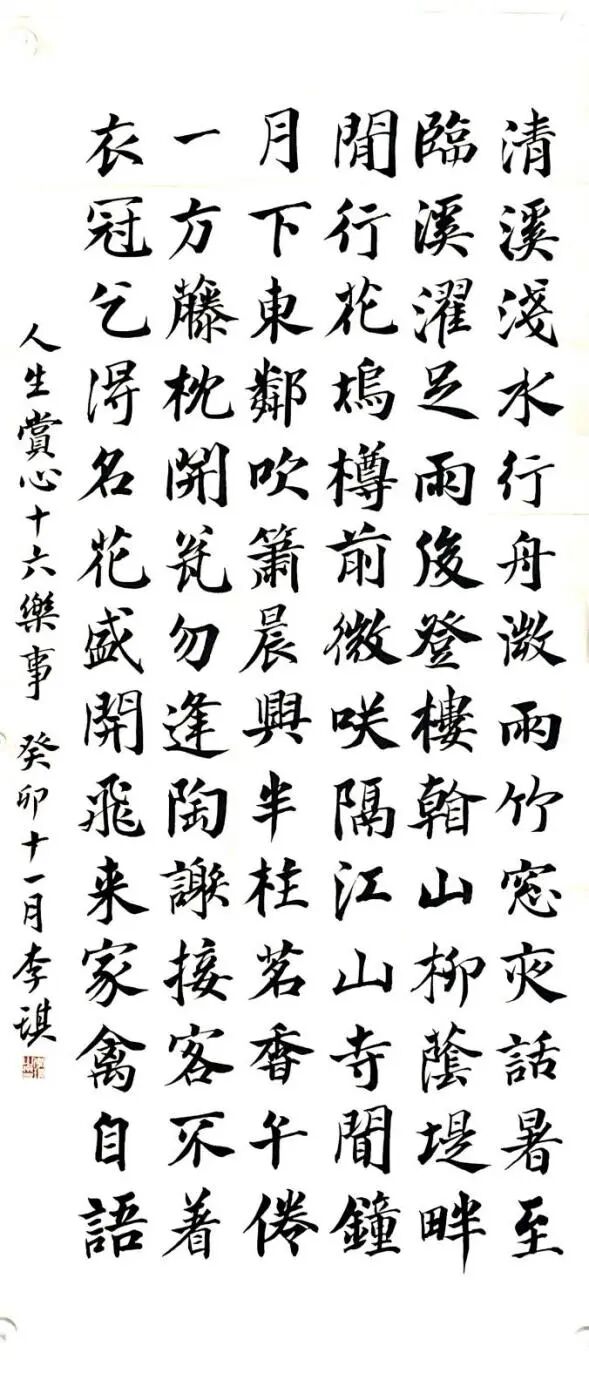 清溪淺水行舟溦雨竹窓夜話暑至
臨溪濯足雨後登樓翰山柳蔭堤畔
閒行花塢樽前微咲隔江山寺聞鐘
月下東鄰吹簫晨興半柱茗香午倦
一方藤枕開瓮勿逢陶謝接客不着
衣冠乞得名花盛開飛来家禽自語
人生賞心十六樂事 癸卯十一月李琪